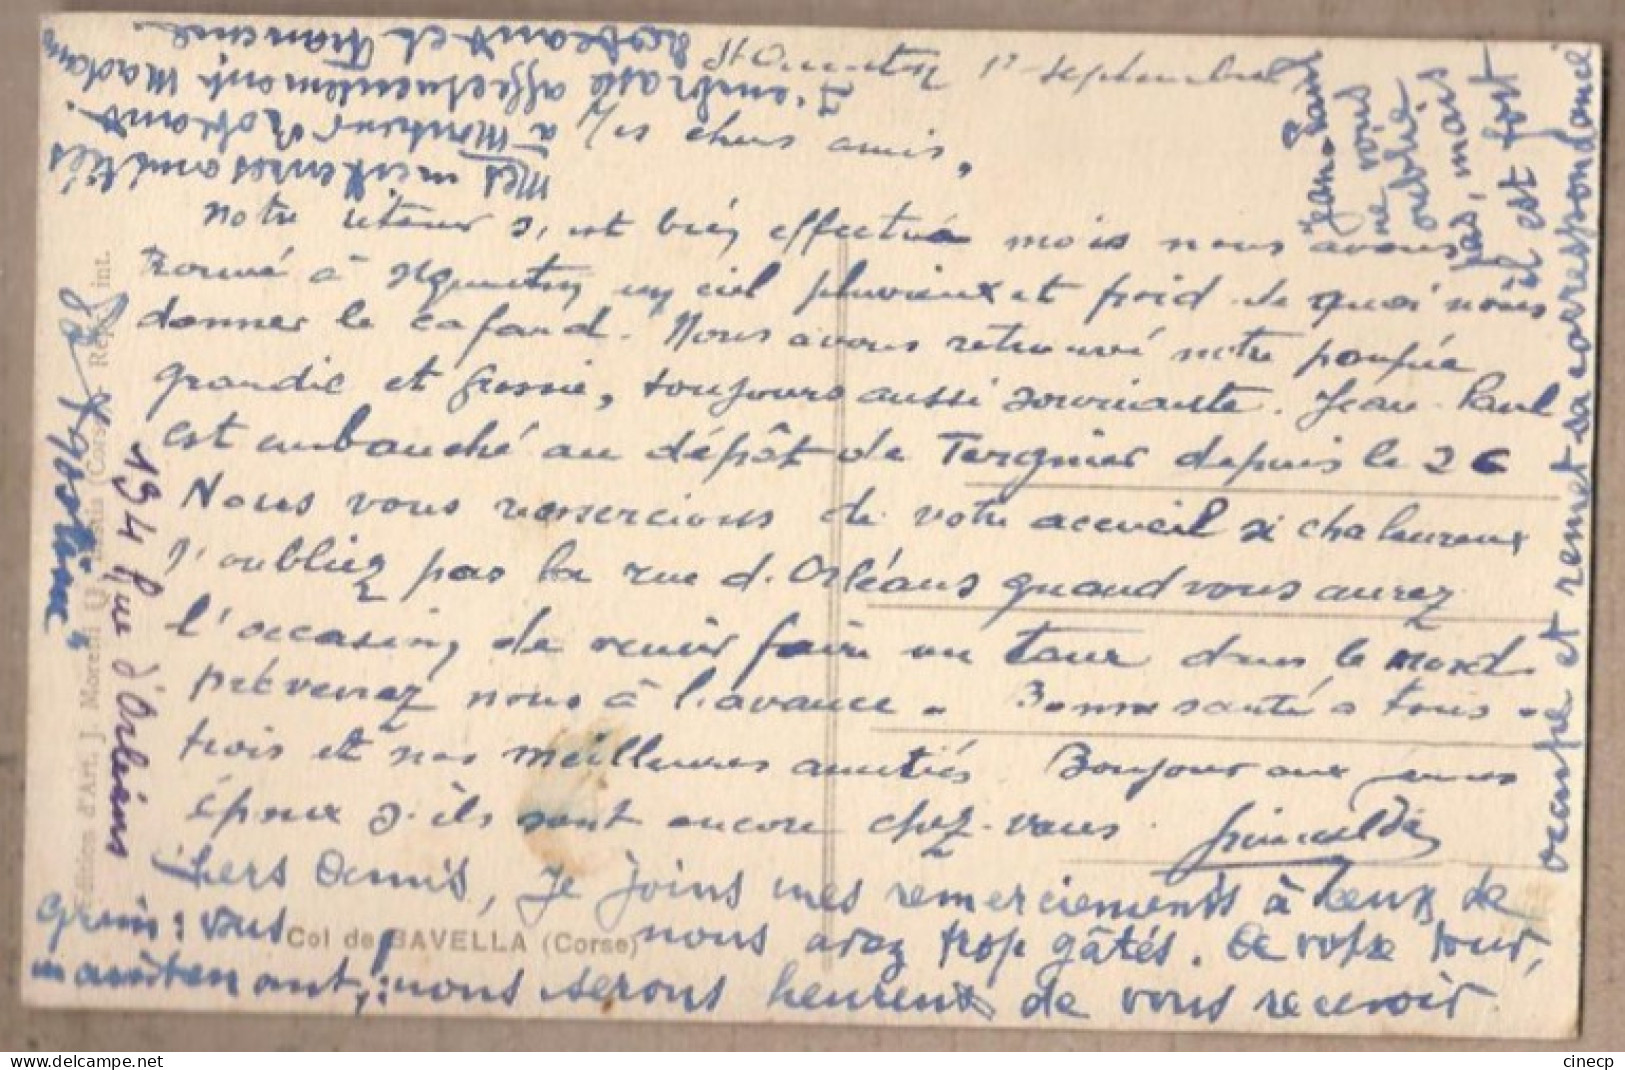 St Quentin 1er septembre
Mes chers amis,
Notre retour s'est bien effectué mais nous avons
trouvé à St Quentin un ciel pluvieux et froid de quoi nous
donner le cafard. Nous avons retrouvé notre poupée
grandie et grossie, toujours aussi souriante. Jean-Paul
est embauché au dépôt de Tergnier depuis le 26
Nous vous remercions de votre accueil si chaleureux
N'oubliez pas la rue d'Orléans quand vous aurez
l'occasion de venir faire un tour dans le Nord
prévenez nous à l'avance. Bonne santé à tous
trois et nos meilleures amitiés Bonjour aux jeunes
époux s'ils sont encore chez-vous.
Chers Ocmis, Je joins mes remerciements à ceux de
: vous nous avez trop gâtés. A votre tour,
maintenant, : nous serons heureux de vous recevoir
Jean-Paul
ne vous
oublie
pas, mais
il est fort
occupé et remet sa correspondance
J'embrasse affectueusement Madame
et Francine.
Mes meilleures amitiés
à Monsieur
194 Rue d'Orléans
Edition d'Art. J. Moretti Bastia (Corse) - Rep. int.
Col de BAVELLA (Corse)
cinecp